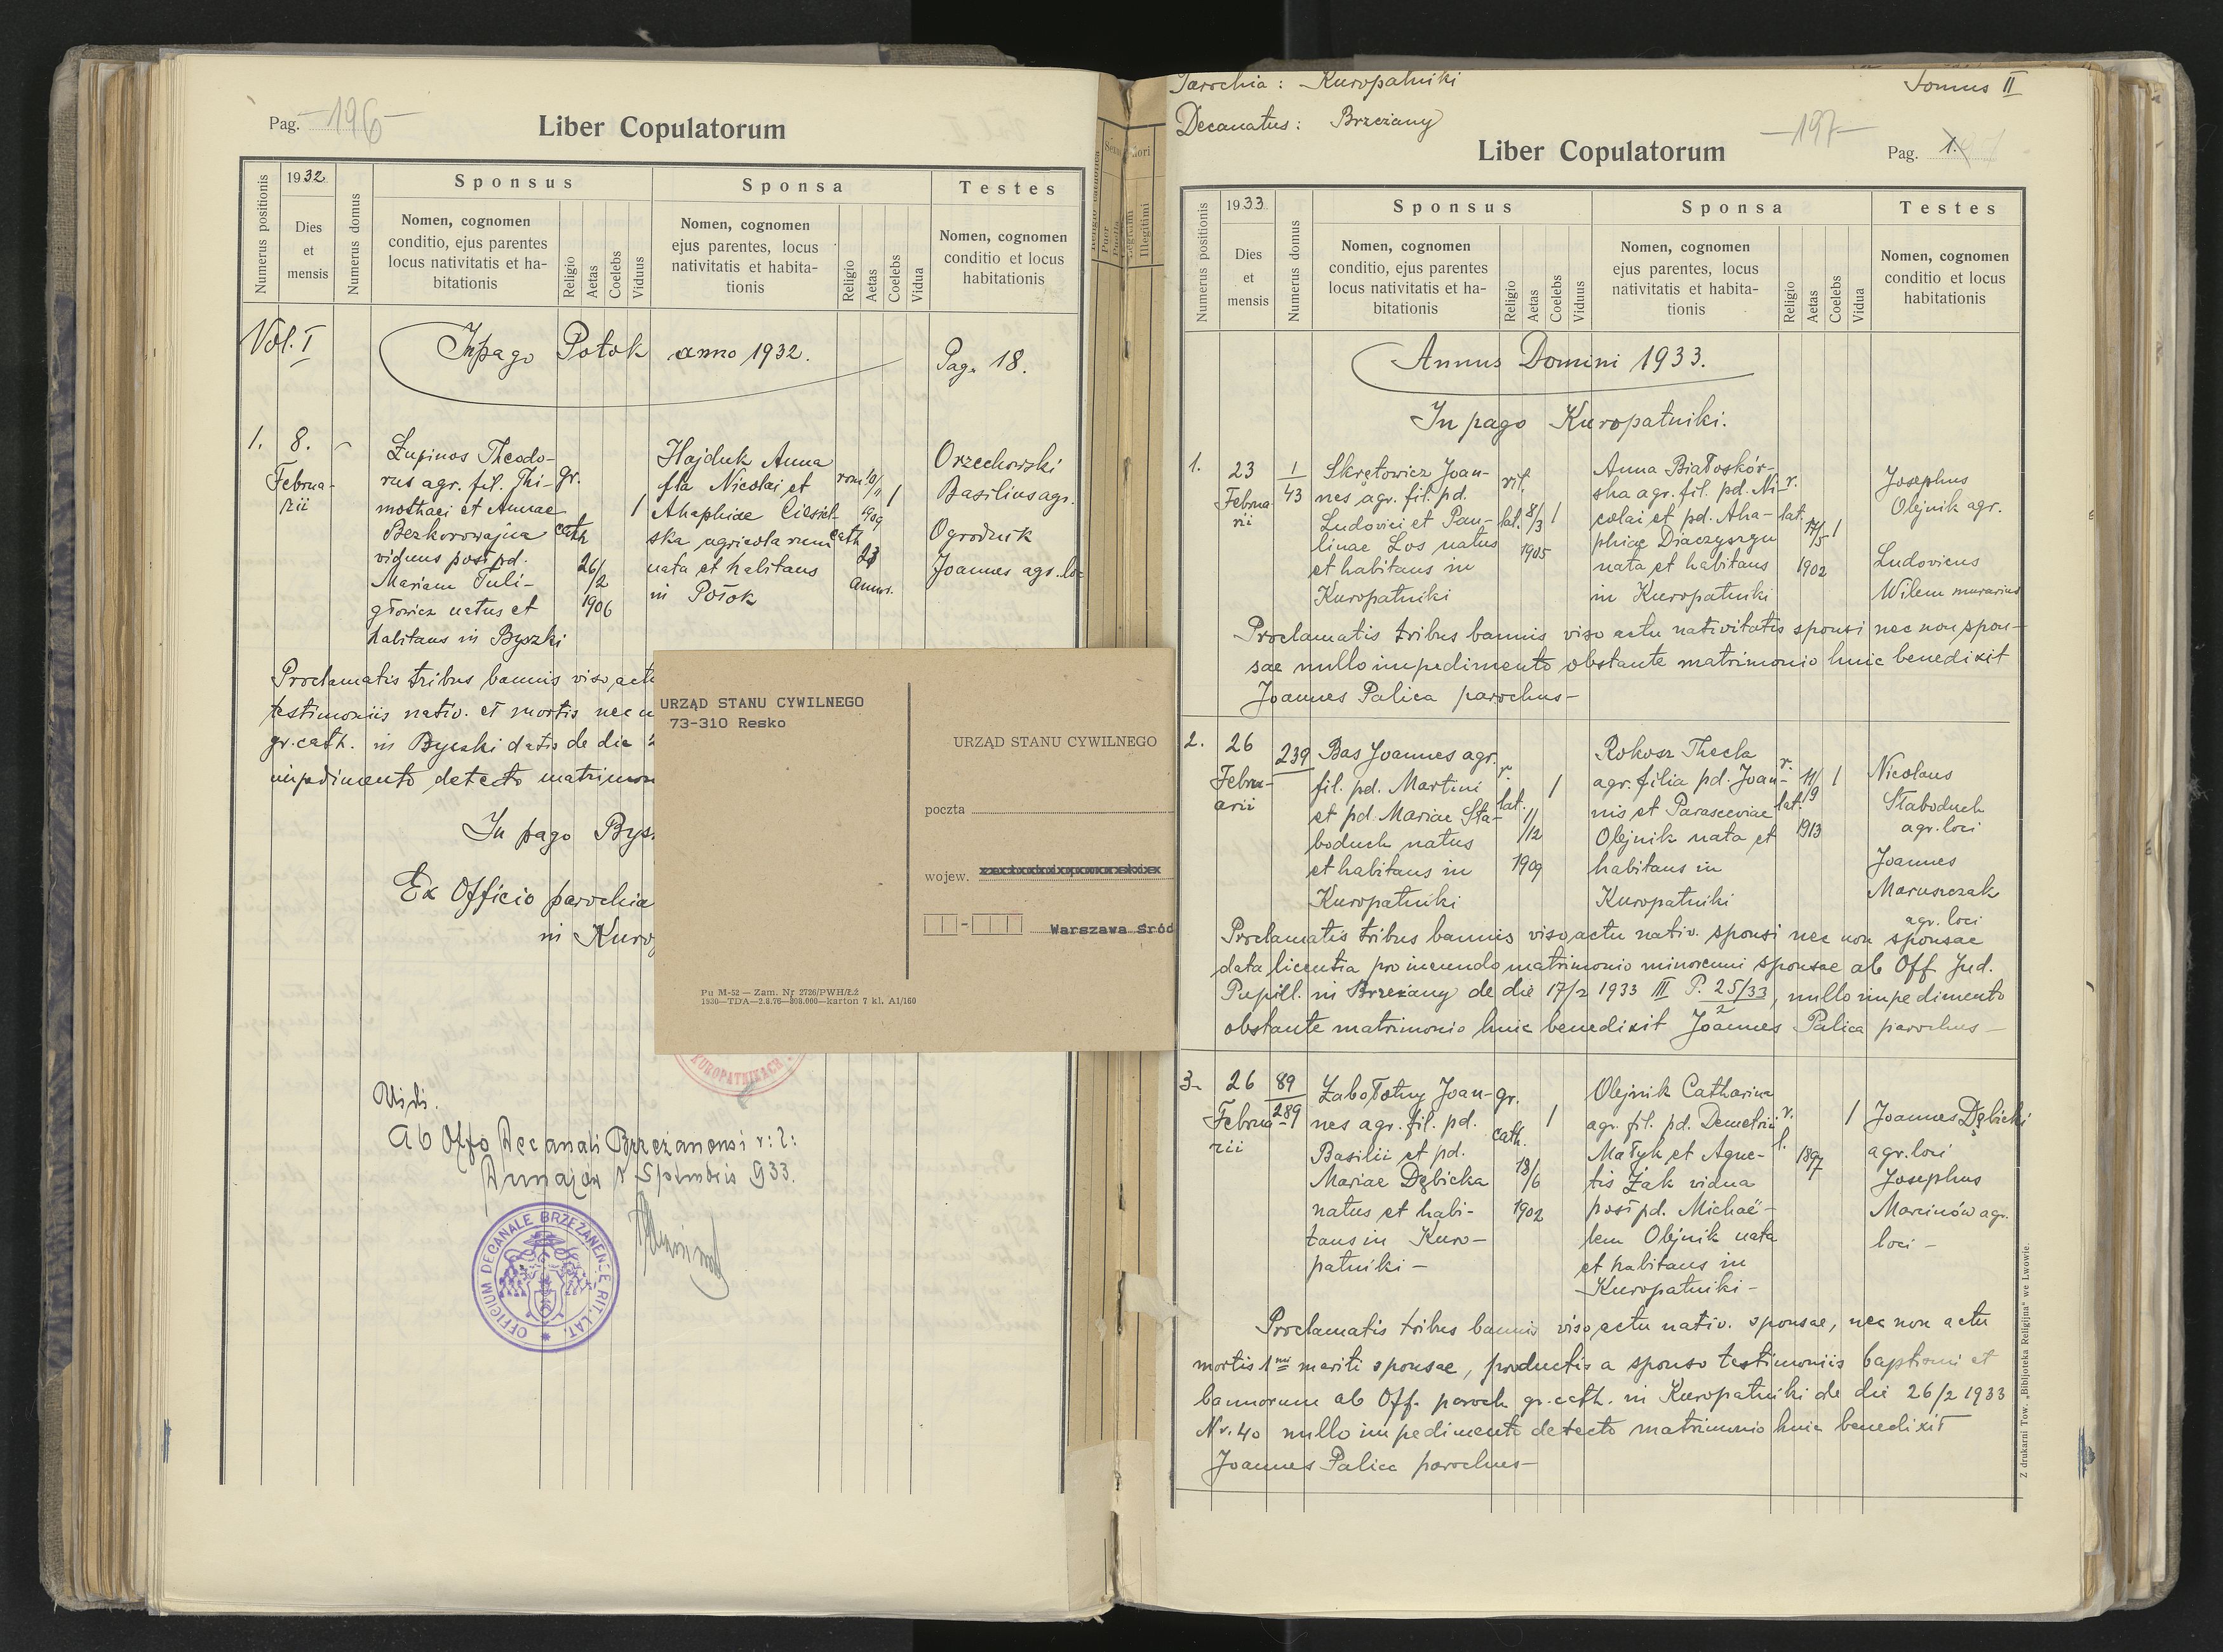 Pag. -196-
Liber Copulatorum
Numerus positionis
1932
Dies
et
mensis
Numerus domus
Sponsus
Nomen, cognomen
conditio, ejus parentes
locus nativitatis et ha-
bitationis
Religio
Aetas
Coelebs
Viduus
Sponsa
Nomen, cognomen
ejus parentes, locus
nativitatis et habita-
tionis
Religio
Aetas
Coelebs
Vidua
Testes
Nomen, cognomen
conditio et locus
habitationis
Vol. I
In pago Potok anno 1932.
Pag. 18.
1.
8.
Februa-
rii
Łupinos Theodo-
rus agr. fil. Thi-
mothaei et Annae
Bezkorowajna
viduus post pd.
Mariam Tuli-
głowicz natus et
habitans in Byszki
gr.
cath
26/
/2
1906
1
Hajduk Anna
fla Nicolai et
Ahaphiae
ska agricola
nata et habitans
in Potok
rom
cath
10/
/11
1909
23
annor.
1
Orzechowski
Basilius agr.
Ogrodnik
Joannes agr. lo
Proclamatis tribus bannis viso actu
testimoniis nativ. et mortis nec n
gr. cath. in Byszki datis de die
impedimento detecto matrimon
In pago Bysz
Ex Officio parochia
in Kurop
URZĄD STANU CYWILNEGO
73-310 Resko
URZĄD STANU CYWILNEGO
poczta
wojew.
Warszawa Śród
Pu M-52 — Zam. Nr 2726/PWH/Łż
1530—TDA—2.8.76—303.000—karton 7 kl. A1/160
KUROPATNIKACH
Vidi.
Ab Offo Decanali Brzeżanensi r: l:
933.
OFFICIUM DECANALE BRZEŻANENSE RIT. LAT.
Parochia: Kuropatniki
Tomus II
Decanatus: Brzeżany
-197-
Liber Copulatorum
Pag. 1.
Numerus positionis
1933
Dies
et
mensis
Numerus domus
Sponsus
Nomen, cognomen
conditio, ejus parentes
locus nativitatis et ha-
bitationis
Religio
Aetas
Coelebs
Viduus
Sponsa
Nomen, cognomen
ejus parentes, locus
nativitatis et habita-
tionis
Religio
Aetas
Coelebs
Vidua
Testes
Nomen, cognomen
conditio et locus
habitationis
Annus Domini 1933.
In pago Kuropatniki.
1.
23
Februa-
rii
1
43
Skrętowicz Joan-
nes agr. fil. pd.
Ludovici et Pau-
linae Los natus
et habitans in
Kuropatniki
rit.
lat.
8/
/3
1905
1
Anna Białoskór-
ska agr. fil. pd. Ni-
colai et pd. Aha-
phiae Diaczyszyn
nata et habitans
in Kuropatniki
r.
lat.
17/
/5
1902
1
Josephus
Olejnik agr.
Ludovicus
Wilem murarius
Proclamatis tribus bannis viso actu nativitatis sponsi nec non spon-
sae nullo impedimento obstante matrimonio huic benedixit
Joannes Palica parochus-
2.
26
Febru-
arii
239
Bas Joannes agr.
fil. pd. Martini
et pd. Mariae Sta-
boduch natus
et habitans in
Kuropatniki
r.
lat.
1/
/12
1909
1
Rokosz Thecla
agr. filia pd. Joan-
nis et Parasceviae
Olejnik nata et
habitans in
Kuropatniki
r.
lat.
11/
/9
1913
1
Nicolaus
Staboduch
agr. loci
Joannes
Maruszczak
agr. loci
Proclamatis tribus bannis viso actu nativ. sponsi nec non sponsae
data licentia pro ineundo matrimonio minorenni sponsae ab Off. Jud.
Pupill. in Brzeżany de die 17/2 1933 III P. 25/33, nullo impedimento
2
obstante matrimonio huic benedixit Joannes Palica parochus-
3-
26
Februa-
rii
89
289
Zabołotny Joan-
nes agr. fil. pd.
Basilii et pd.
Mariae Dębicka
natus et habi-
tans in Kuro-
patniki-
gr.
cath.
18/
/6
1902
1
Olejnik Catharina
agr. fil. pd. Demetrii
Małyk et Agne-
tis Żak vidua
post pd. Michaë-
lem Olejnik nata
et habitans in
Kuropatniki-
r.
l.
1897
1
Joannes Dębicki
agr. loci
Josephus
Marcinów agr.
loci-
Proclamatis tribus bannis viso actu nativ. sponsae, nec non actu
mortis 1mi mariti sponsae, productis a sponso testimoniis baptismi et
bannorum ab Off. paroch gr. cath. in Kuropatniki de die 26/2 1933
Nr. 40 nullo impedimento detecto matrimonio huic benedixit
Joannes Palica parochus-
Z drukarni Tow. „Bibljoteka Religijna" we Lwowie.